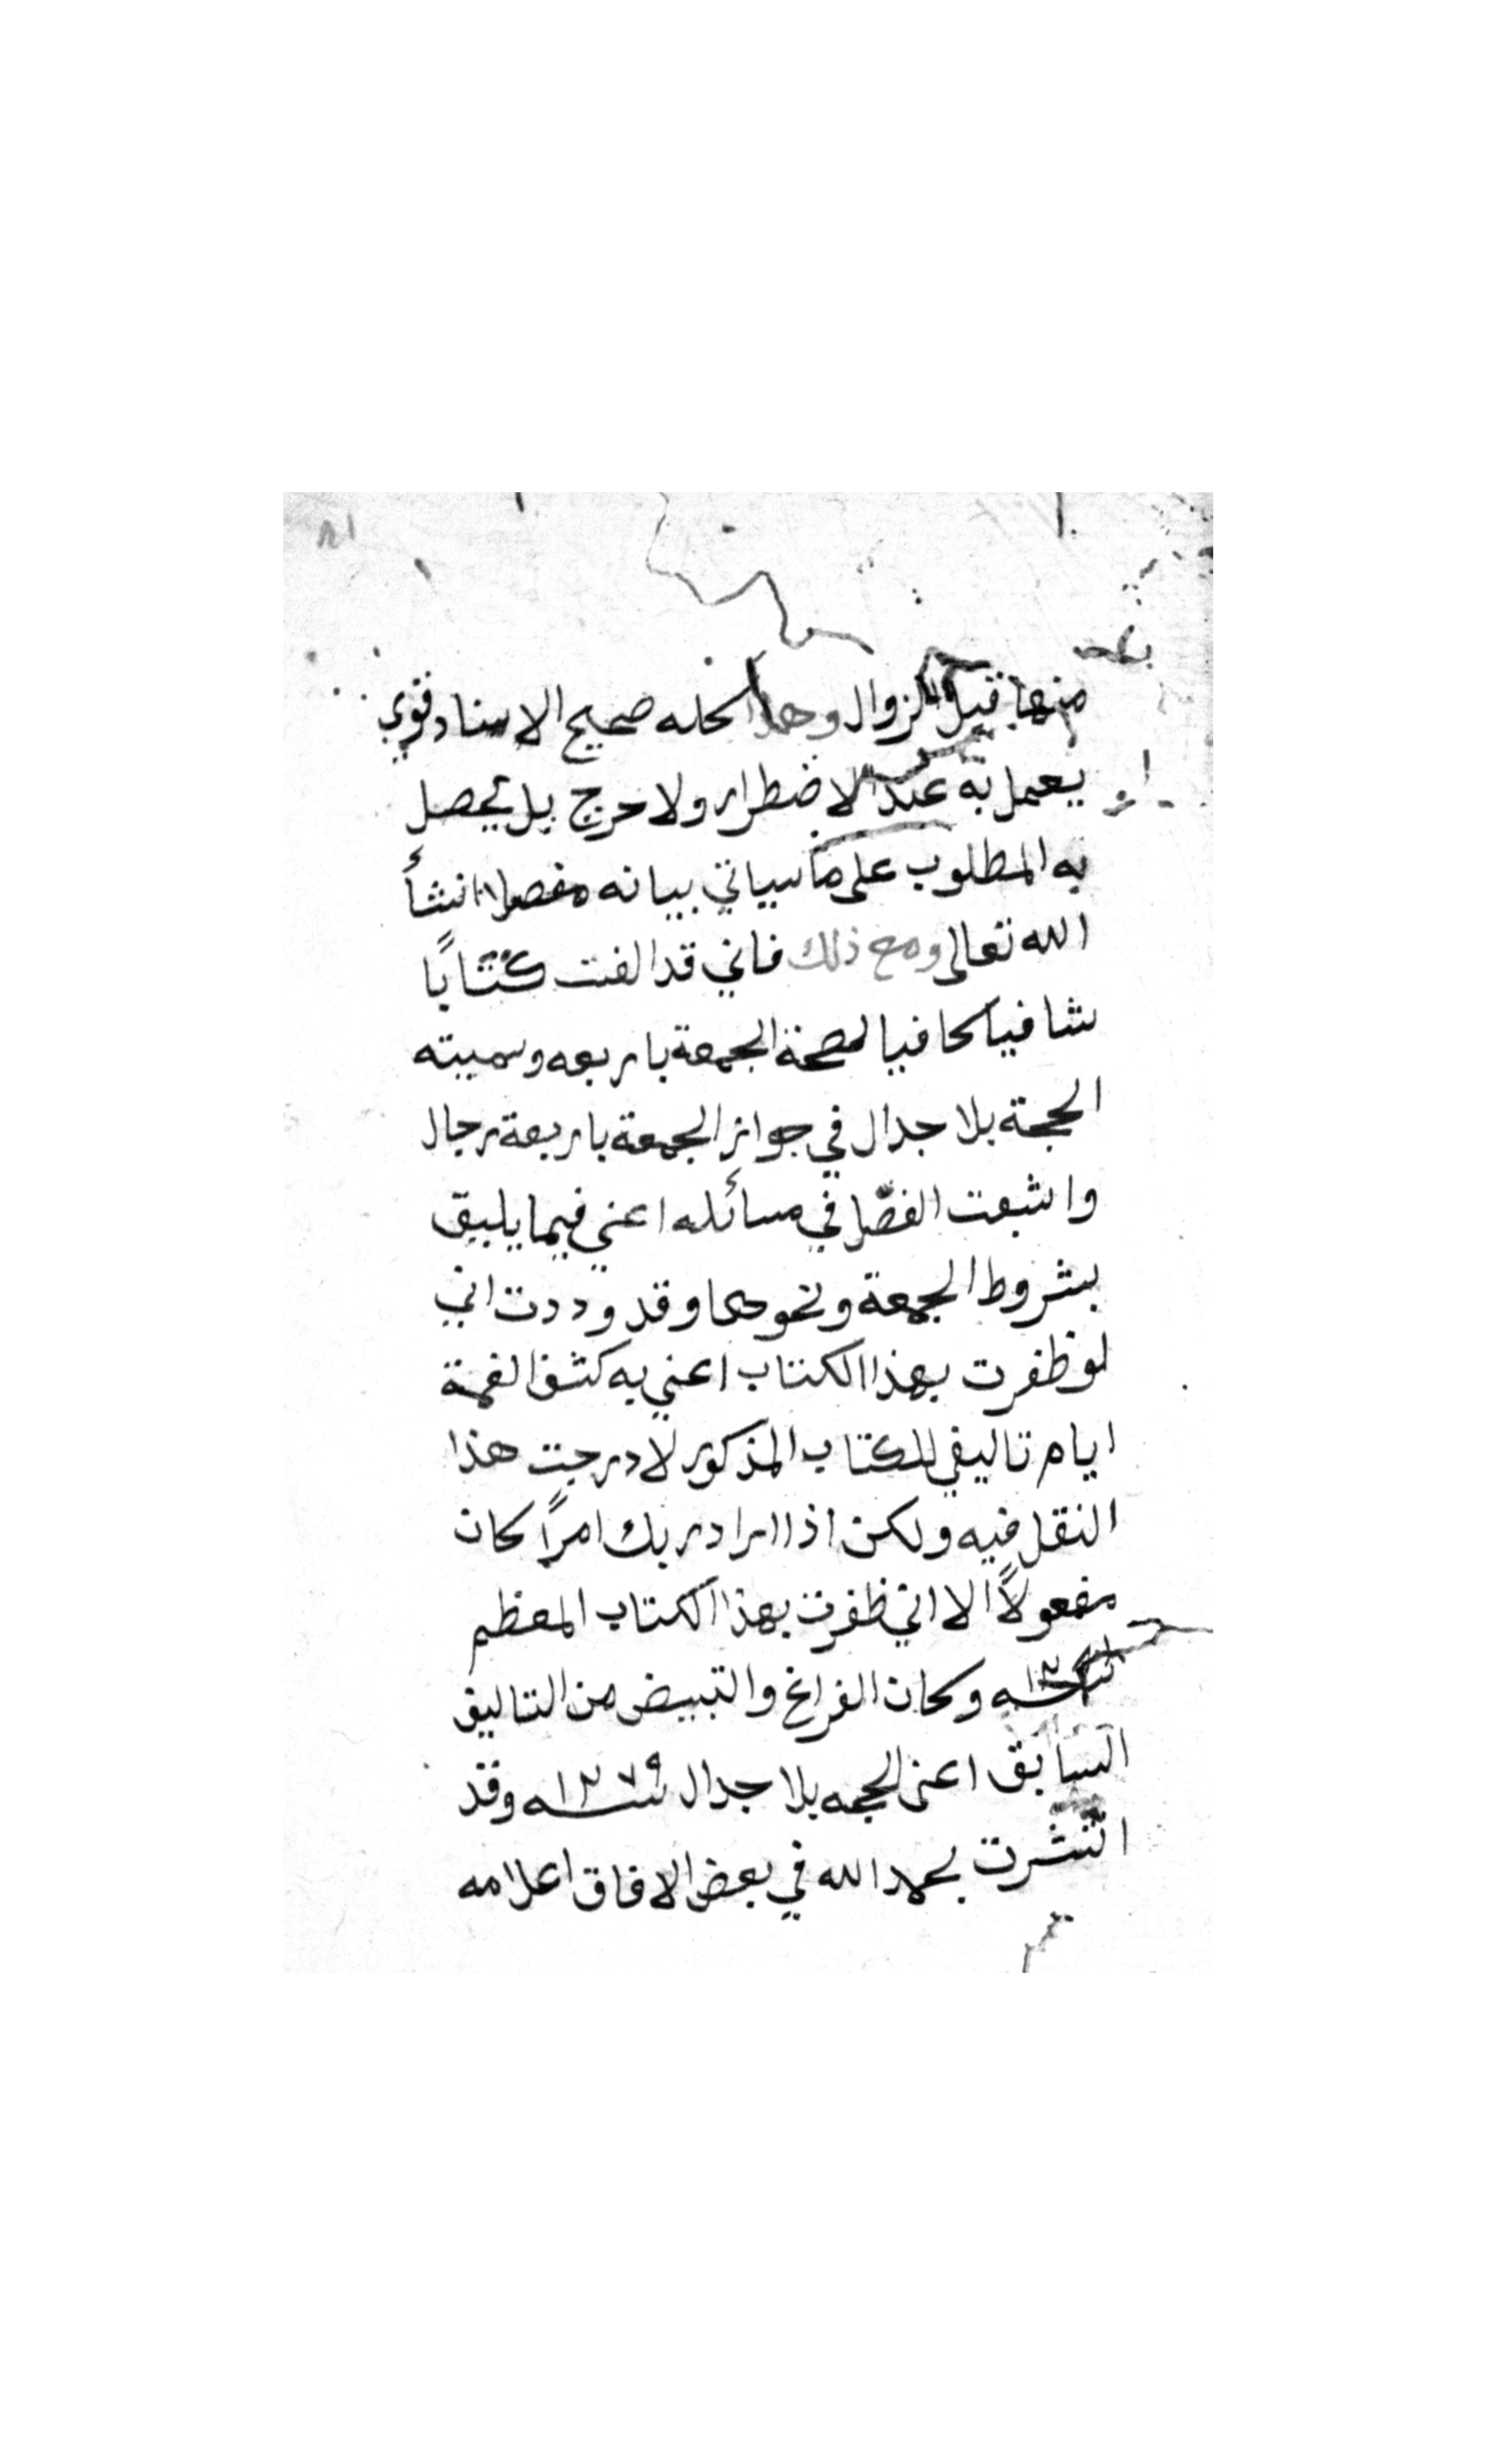 منها قبيل الزوال وهذا كله صحيح الاسناد قوي
يعمل به عند الاضطرار ولا حرج بل يحصل
به المطلوب على ما سياتي بيانه مفصلا انشأ
الله تعالى ومع ذلك فاني قد الفت كتابًا
شافيا كافيا لصحة الجمعة باربعه وسميته
الحجة بلا جدال في جواز الجمعة باربعة رجال
واشبعت الفصّل في مسائله اعني فيما يليق
بشروط الجمعة ونحوها وقد وددت اني
لو ظفرت بهذا الكتاب اعني به كشف الغمة
ايام تاليفي للكتاب المذكور لادرجت هذا
النقل فيه ولكن اذا اراد ربك امرًا كان
مفعولاً الا اني ظفرت بهذا الكتاب المعظم
سنه وكان الفراغ والتبييض من التاليف
السابق اعني الحجه بلا جدال سنه ١٢٧٩ وقد
انتشرت بحمد الله في بعض الافاق اعلامه